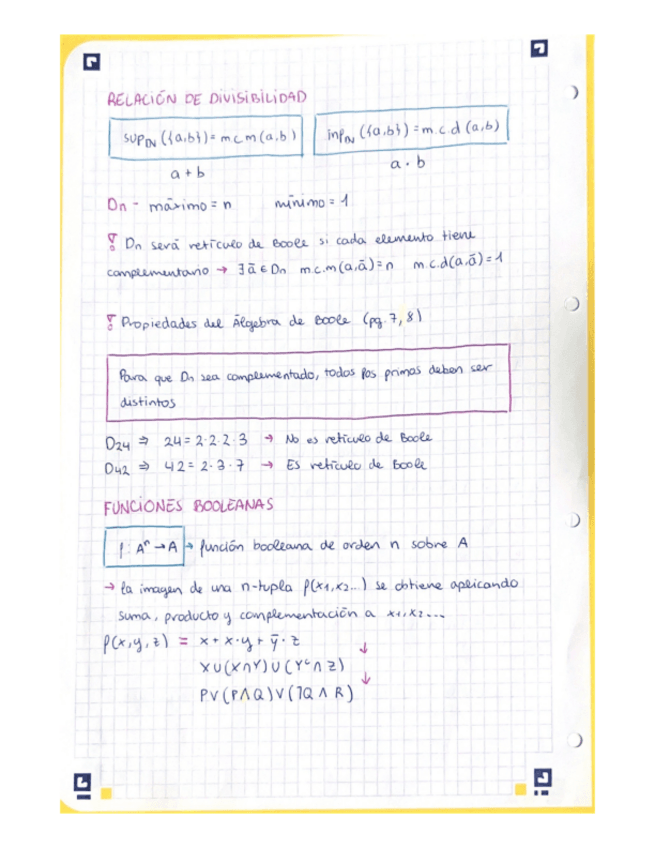 RELACIÓN DE DIVISIBILIDAD
sup_ℕ ({a,b}) = m.c.m (a,b)
inf_ℕ ({a,b}) = m.c.d (a,b)
a + b
a · b
Dn - máximo = n mínimo = 1
Dn será retículo de Boole si cada elemento tiene
complementario → ∃ ā ∈ Dn m.c.m (a,ā) = n m.c.d (a,ā) = 1
Propiedades del Álgebra de Boole (pg. 7, 8)
Para que Dn sea complementado, todos los primos deben ser
distintos
D24 ⇒ 24 = 2·2·2·3 → No es retículo de Boole
D42 ⇒ 42 = 2·3·7 → Es retículo de Boole
FUNCIONES BOOLEANAS
f: Aⁿ → A → función booleana de orden n sobre A
→ la imagen de una n-tupla f(x1, x2...) se obtiene aplicando
suma, producto y complementación a x1, x2...
f(x, y, z) = x + x·y + ȳ·z
↓
X ∪ (X ∩ Y) ∪ (Yᶜ ∩ Z)
↓
P ∨ (P ∧ Q) ∨ (¬Q ∧ R)